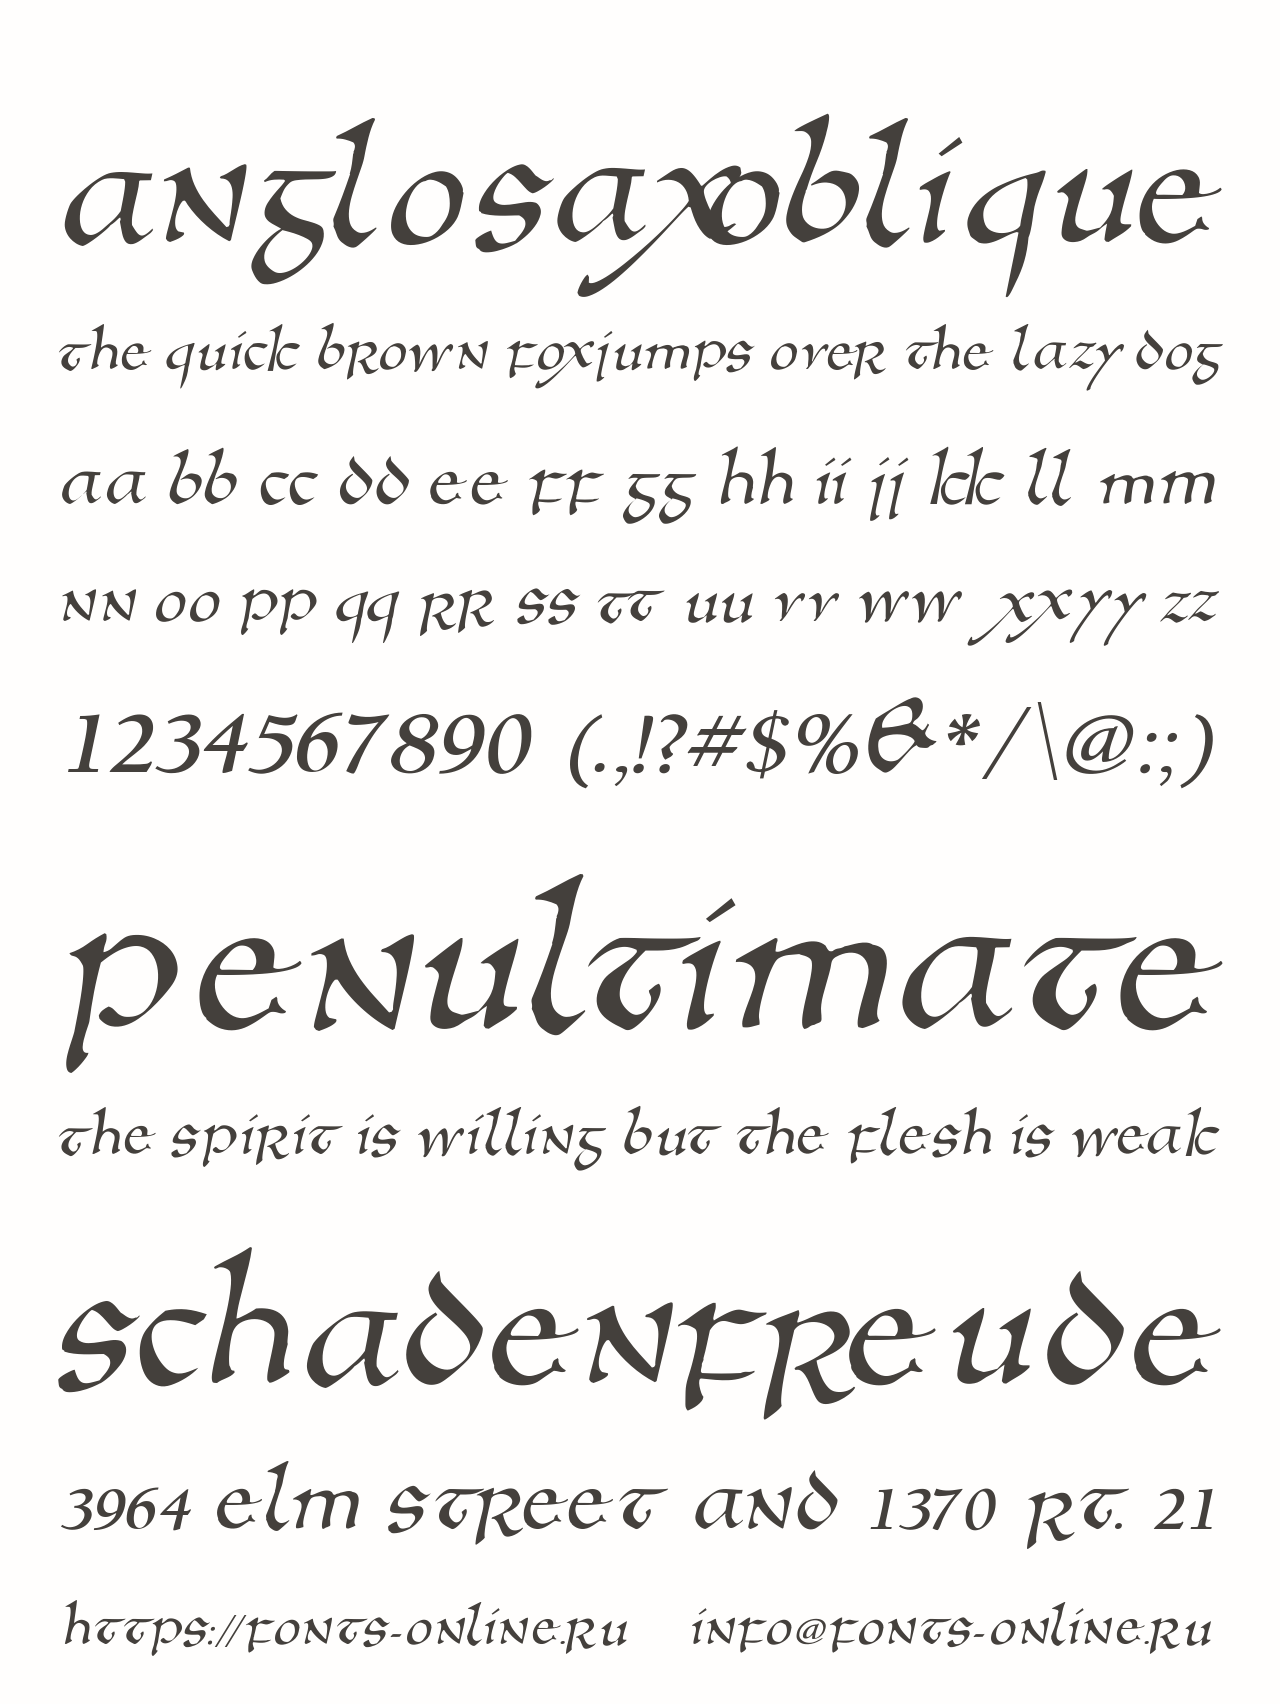 anglosaxoblique
the quick brown foxjumps over the lazy dog
aa bb cc dd ee ff gg hh ii jj kk ll mm
nn oo pp qq rr ss tt uu vv ww xx yy zz
1234567890 (.,!?#$%&*/\@:;)
penultimate
the spirit is willing but the flesh is weak
schadenfreude
3964 elm street and 1370 rt. 21
https://fonts-online.ru info@fonts-online.ru